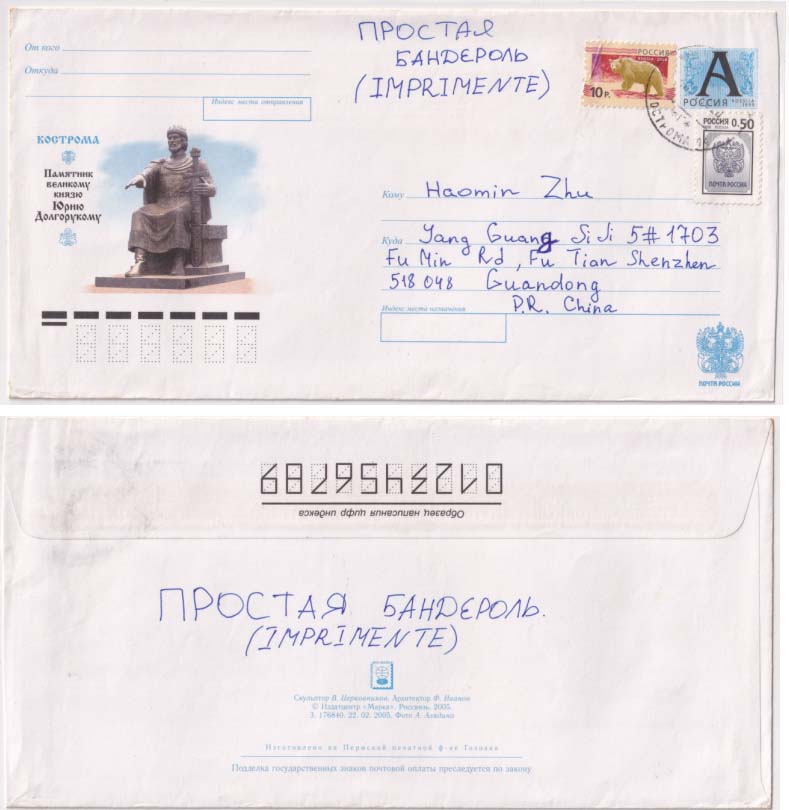 ПРОСТАЯ
БАНДЕРОЛЬ
(IMPRIMENTE)
От кого
Откуда
Индекс места отправления
РОССИЯ
10 Р.
А
РОССИЯ
РОССИЯ 0.50
ПОЧТА РОССИИ
КОСТРОМА
КОСТРОМА
Памятник
великому
князю
Юрию
Долгорукому
Кому Haomin Zhu
Куда Yang Guang Si Ji 5#1703
Fu Min Rd, Fu Tian Shenzhen
518 048 Guandong
P.R. China
Индекс места назначения
ПОЧТА РОССИИ
0123456789
Образец написания цифр индекса
ПРОСТАЯ БАНДЕРОЛЬ.
(IMPRIMENTE)
Скульптор В. Церковников. Архитектор Ф. Иванов
© Издатцентр «Марка». Россвязь. 2005.
З. 176840. 22. 02. 2005. Фото А.
Изготовлено на Пермской печатной ф-ке Гознака
Подделка государственных знаков почтовой оплаты преследуется по закону